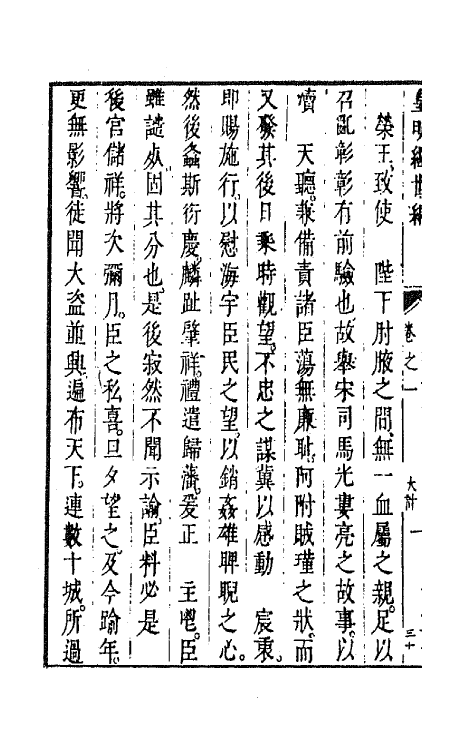 皇明經世編
卷之一 大計 一 三十
榮王、致使 陛下肘腋之間、無一血屬之親。足以
召亂彰彰有前驗也、故舉宋司馬光婁亮之故事。以
凟 天聽。兼備責諸臣蕩無廉恥。阿附賊瑾之狀。而
又發其後日乘時觀望。不忠之謀冀以感動 宸衷。
即賜施行。以慰海宇臣民之望。以銷姦雄睥睨之心。
然後螽斯衍慶。麟趾肇祥。禮遣歸藩。爰正 主鬯。臣
雖譴死固其分也。是後寂然不聞示諭。臣料必是
後宮儲祥。將次彌月。臣之私喜。旦夕望之。及今踰年。
更無影響。徒聞大盜並興。遍布天下。連數十城。所過